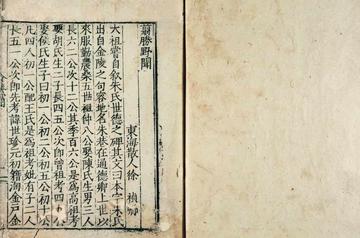 翦勝野聞
東海散人徐 禎卿
太祖嘗自叙朱氏世德之碑其文曰本宗朱氏
出自金陵之句容地名朱巷在通德鄉上世以
來服勤農桑五世祖仲八公娶陳氏生男三人
長六二公次十二公其季百六公是爲高祖考
娶胡氏生二子長四五公次即曾祖考四九公
娶侯氏生子曰初一公初二公初五公初十公
凡四人初一公配王氏是爲祖考妣有子二人
長五一公次即先考諱世珍元初籍淘金戶金